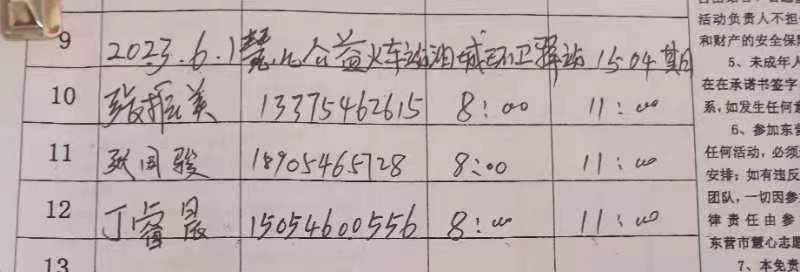 9 2023.6.1慧心公益火车站油城环卫驿站15.04期
10 张振美 13375462615 8:00 11:00
11 张国骏 18905465728 8:00 11:00
12 丁睿晨 15054600556 8:00 11:00
13
活动负责人不担
和财产的安全保
5、未成年人
在在承诺书签字
系,如发生任何意
6、参加东营
任何活动,必须
安排;如有违反
团队,一切因参
律责任由参
东营市慧心志愿
7、本免责